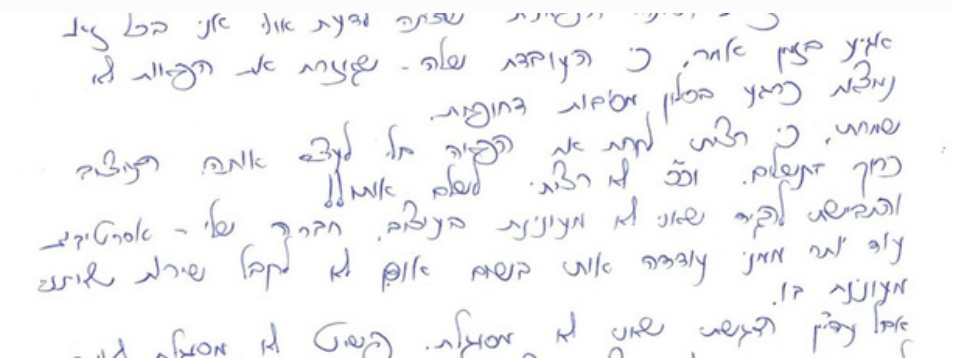 שצתה לדעת אולי אני בכל זאת
אגיע בזמן אחר, כי העובדת שלה - שגוזרת את הפאות לא
נמצאת כרגע בסלון מסיבות דחופות.
שמחתי, כי רציתי לקחת את הפאה בלי לעצב אותה. העיצוב
כרוך בתשלום. וככ לא רציתי לשלם אותו!!
והתביישתי להגיד שאני לא מעונינת בעיצוב. חברה שלי - אסרטיבית
עוד יותר ממני עודדה אותי בשום אופן לא לקבל שירות שאינני
מעונינת בו.
אבל עדיין הרגשתי שאני לא מסוגלת. פשוט לא מסוגלת